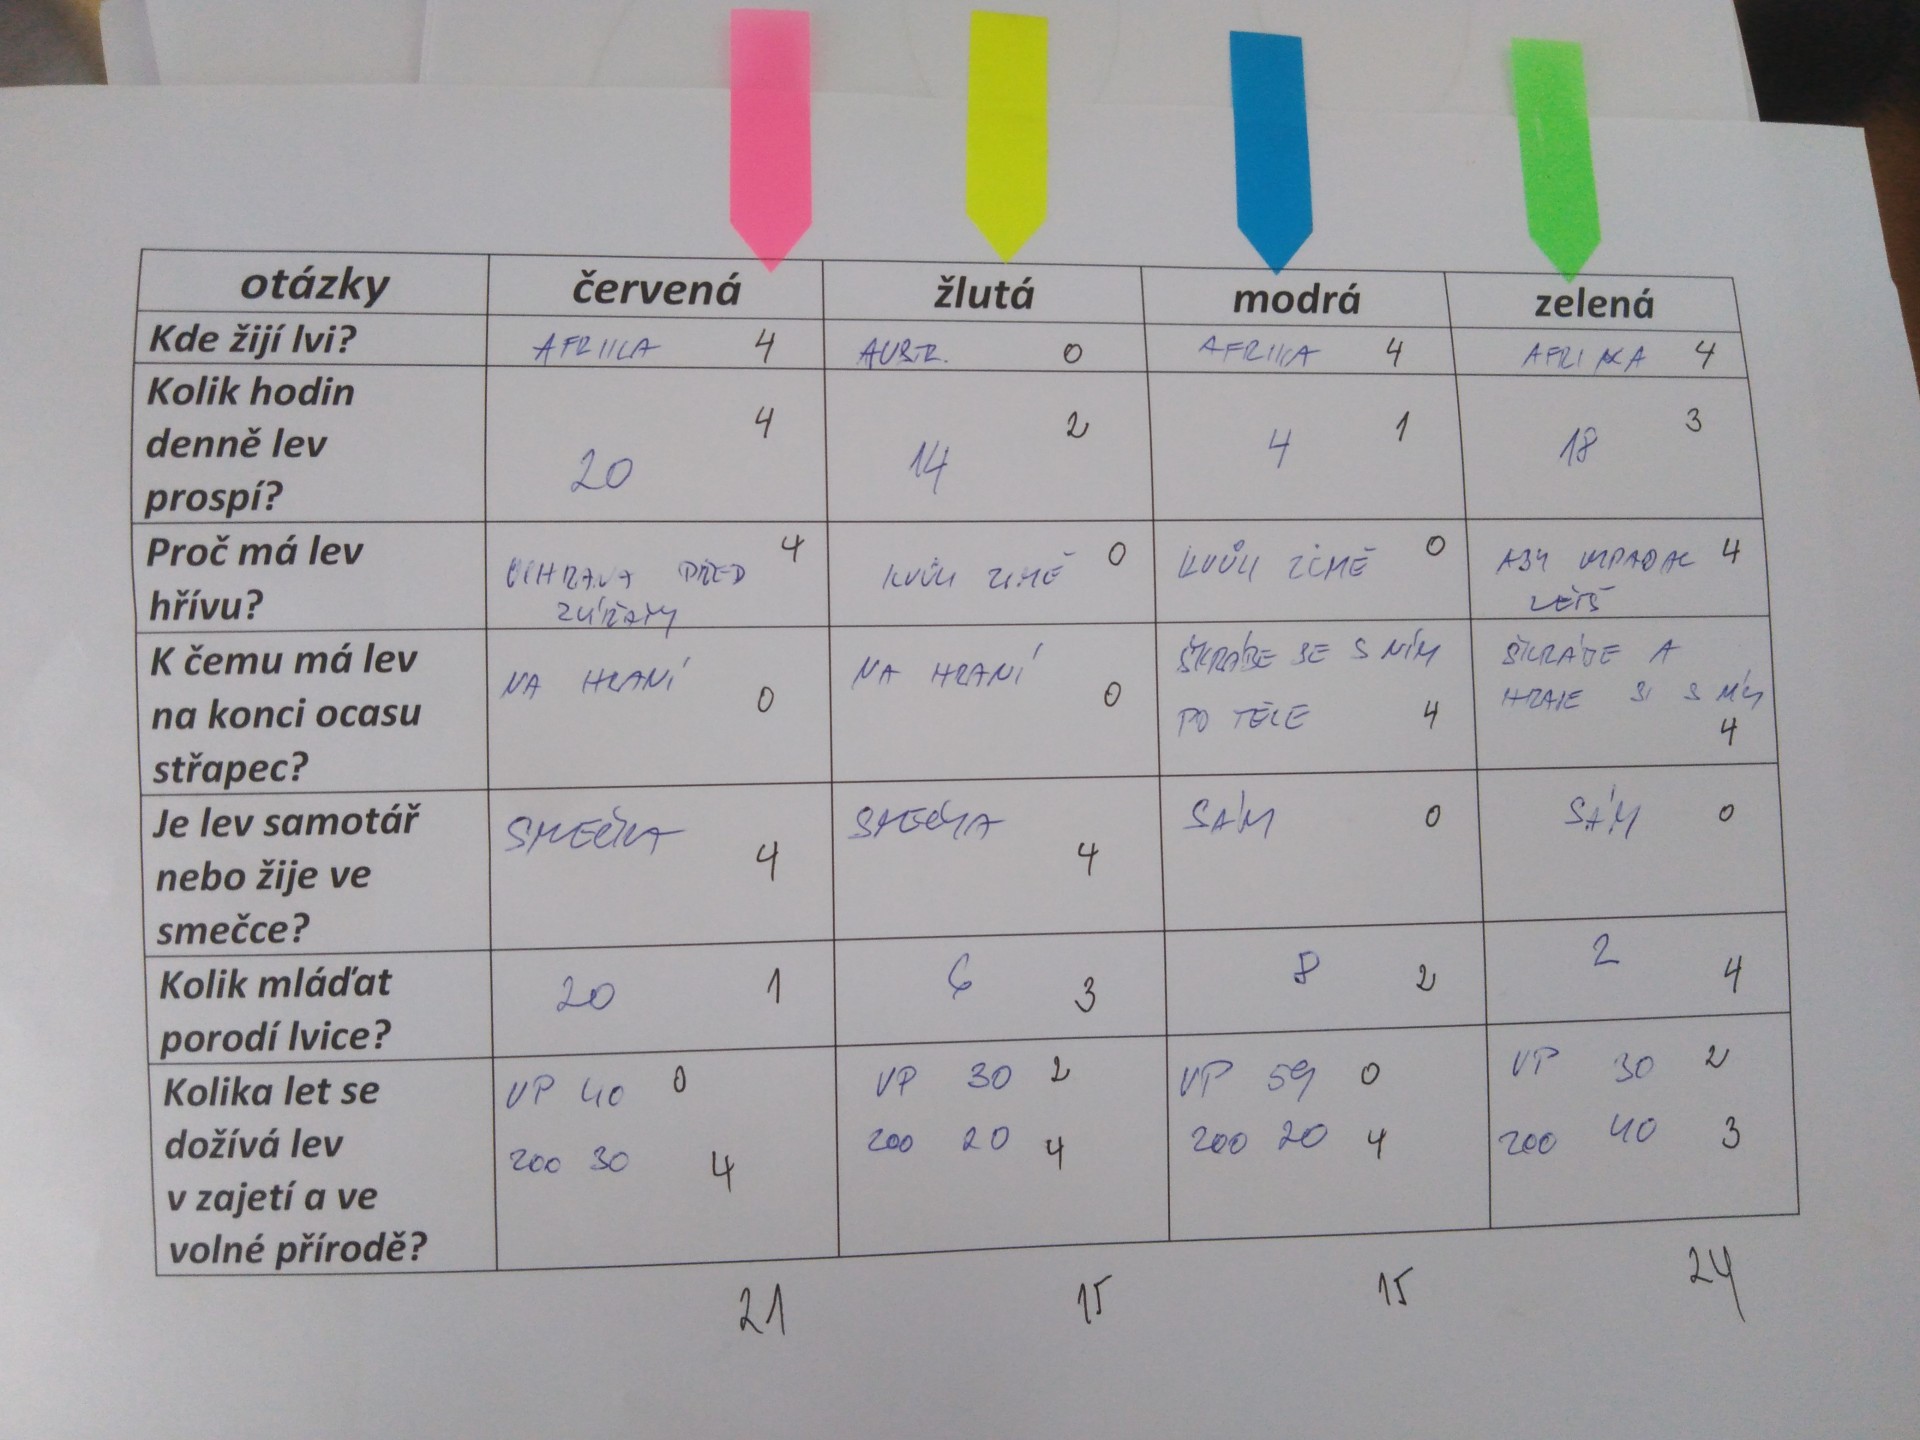 otázky červená žlutá modrá zelená
Kde žijí lvi? AFRIKA 4 AUSTR. 0 AFRIKA 4 AFRIKA 4
Kolik hodin
denně lev
prospí?
20 4 14 2 4 1 18 3
Proč má lev
hřívu?
OCHRANA PŘED 4
ZVÍŘATY
KVŮLI ZIMĚ 0
KVŮLI ZIMĚ 0
ABY VYPADAL 4
VĚTŠ
K čemu má lev
na konci ocasu
střapec?
NA HRANÍ
0
NA HRANÍ
0
ŠKRÁBE SE S NÍM
PO TĚLE 4
ŠKRÁBE A
HRAJE SI S NÍM
4
Je lev samotář
nebo žije ve
smečce?
SMEČKA
4
SMEČKA
4
SÁM 0
SÁM 0
Kolik mláďat
porodí lvice?
20 1 6 3 8 2 2 4
Kolika let se
dožívá lev
v zajetí a ve
volné přírodě?
VP 40 0
ZOO 30 4
VP 30 2
ZOO 20 4
VP 59 0
ZOO 20 4
VP 30 2
ZOO 40 3
21 15 15 24